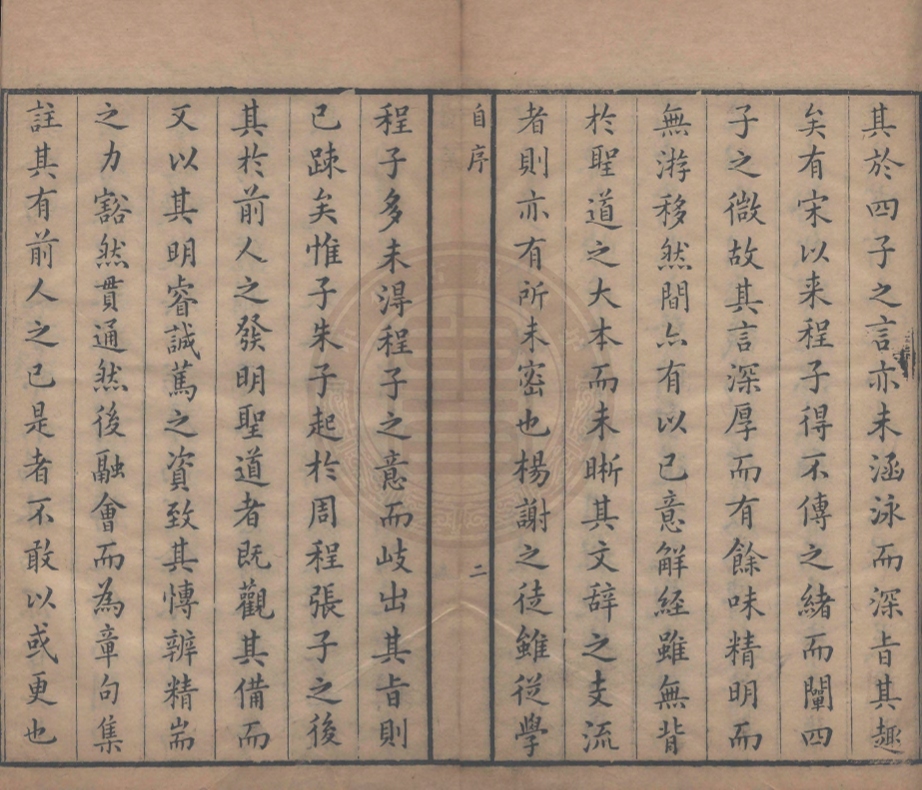 其於四子之言亦未涵泳而深㫖其趣
矣有宋以来程子得不傳之緒而闡四
子之微故其言深厚而有餘味精明而
無游移然間亦有以已意解経雖無背
於聖道之大本而未晰其文辞之支流
者則亦有所未密也楊謝之徒雖従學
自序
二
程子多未得程子之意而岐出其㫖則
已踈矣惟子朱子起於周程張子之後
其於前人之發明聖道者既觀其備而
又以其明睿誠篤之資致其慱辨精耑
之力豁然貫通然後融會而為章句集
註其有前人之已是者不敢以或更也